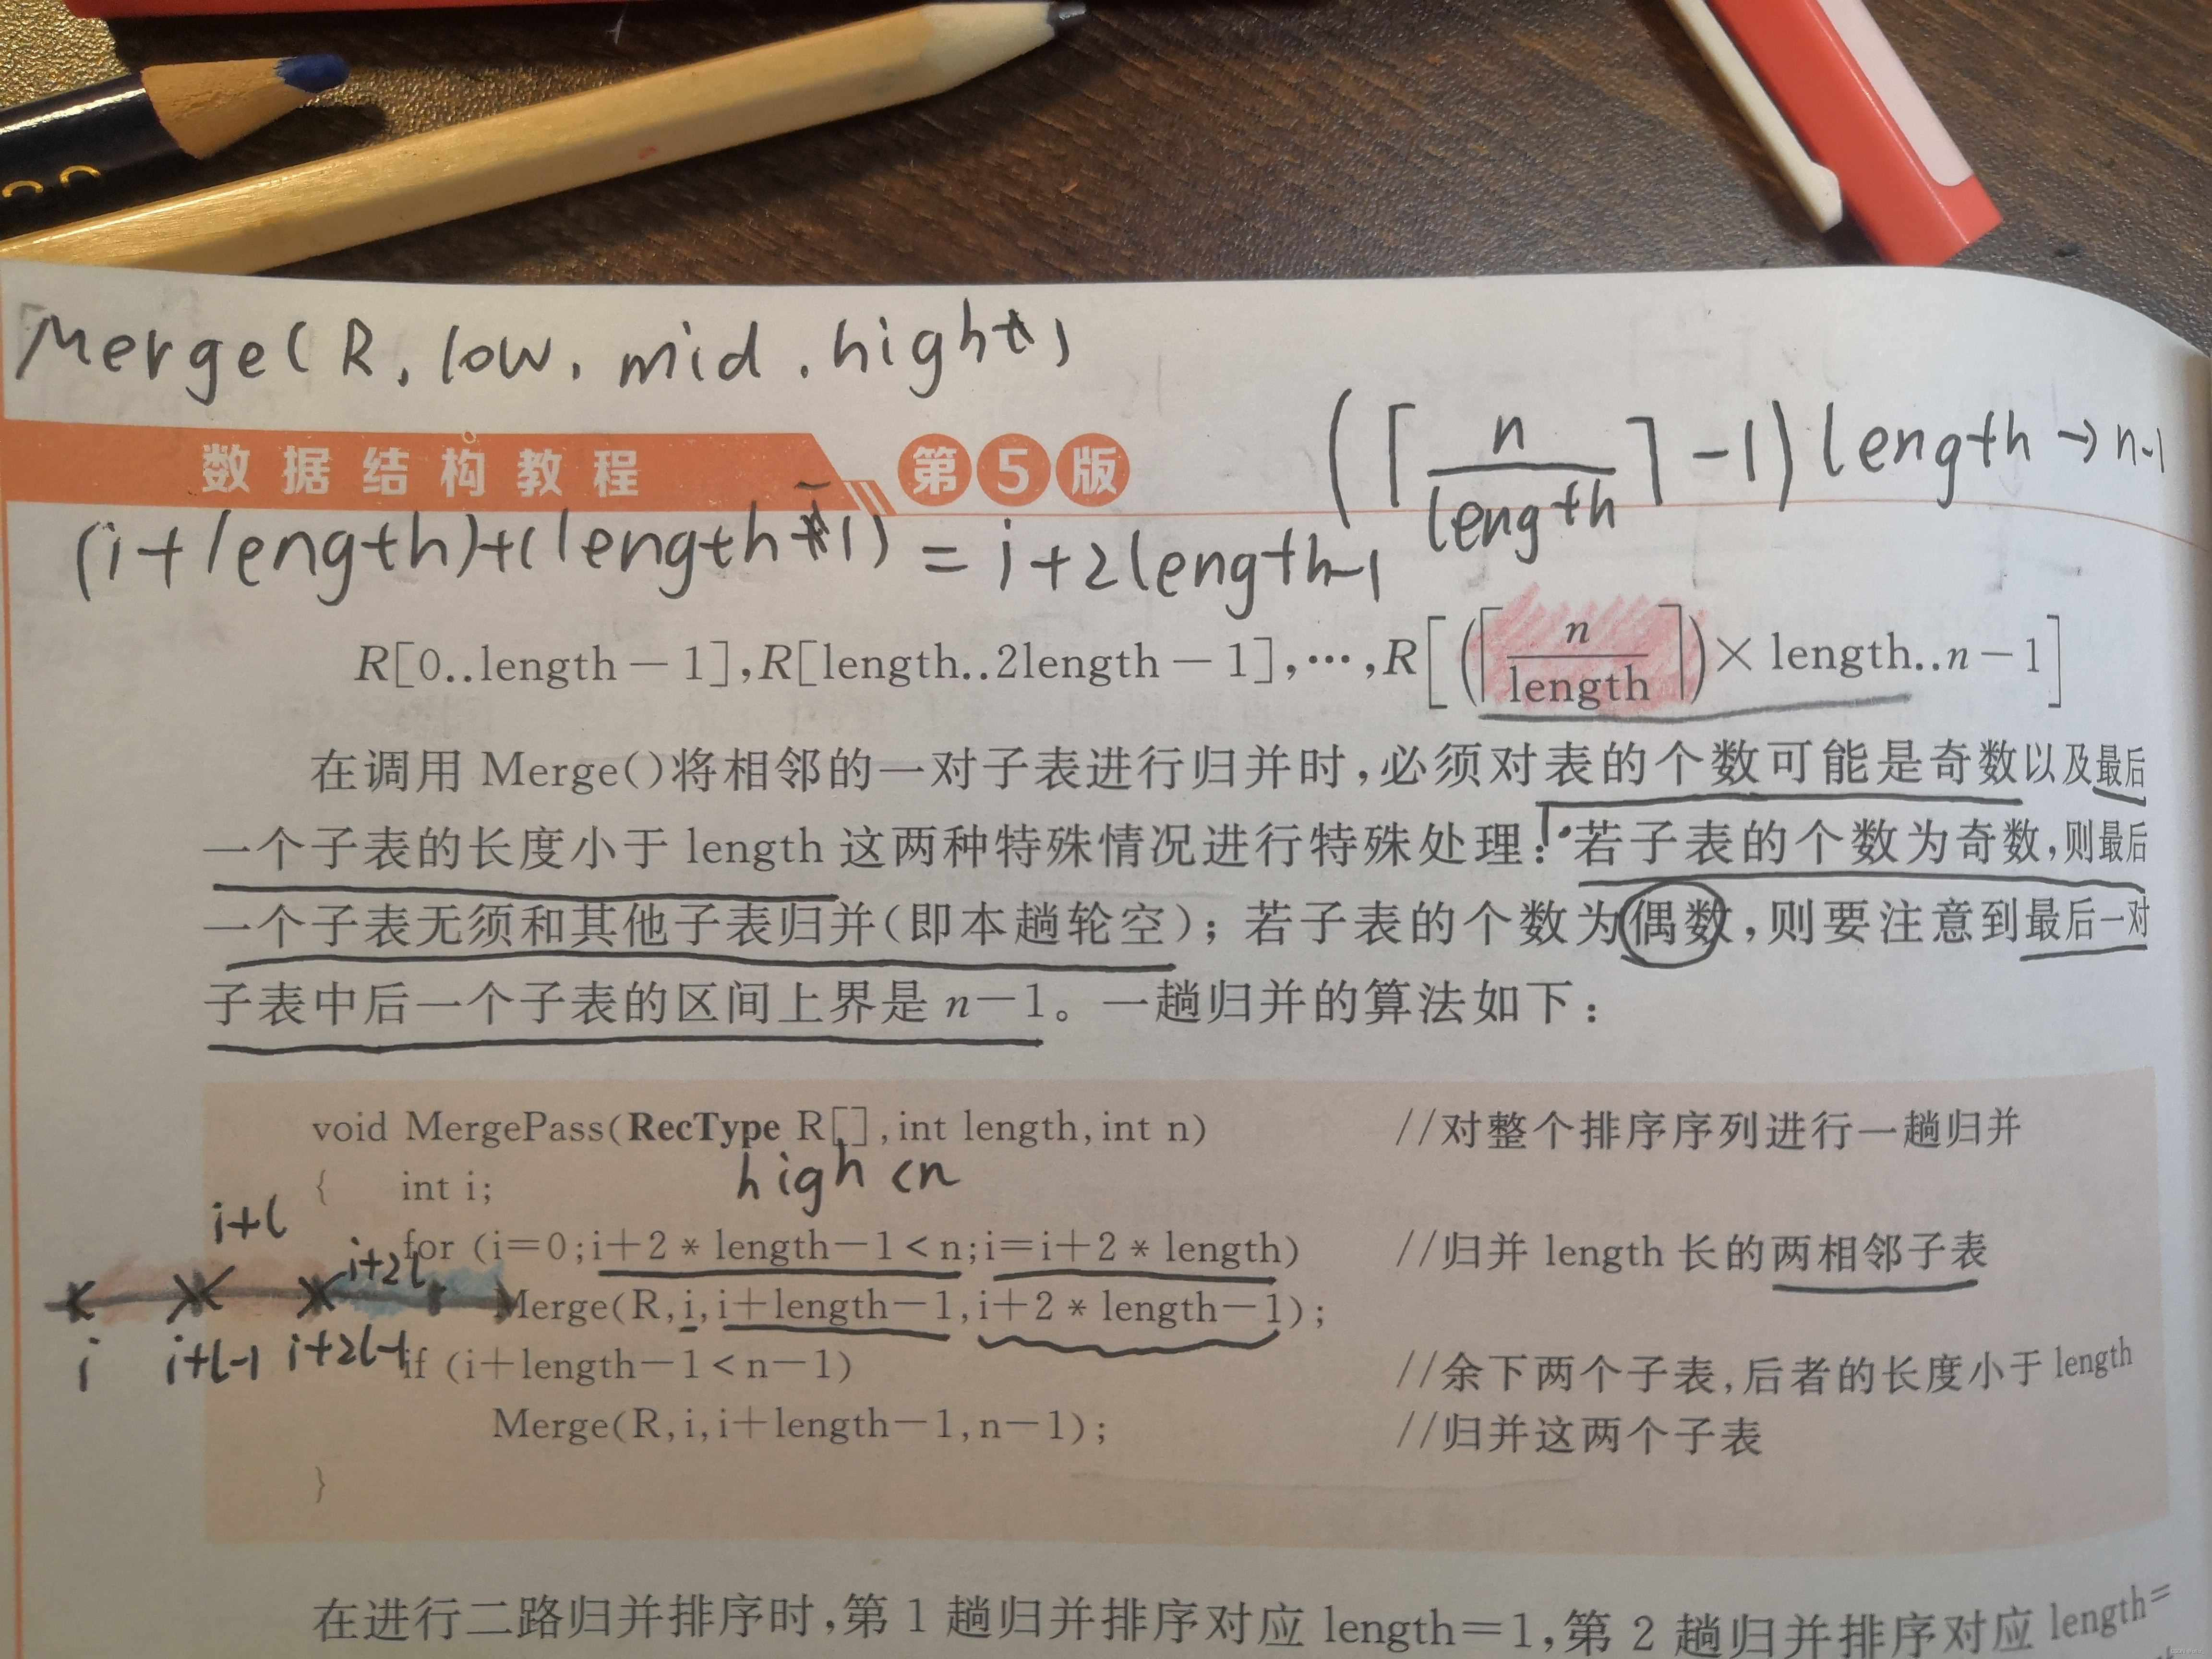 Merge(R, low, mid, hight)
数据结构教程 第5版
(⌈n/length⌉-1)length→n-1
(i+length)+(length-1)=i+2length-1
R[0..length-1],R[length..2length-1],…,R[(⌈n/length⌉)×length..n-1]
在调用 Merge()将相邻的一对子表进行归并时,必须对表的个数可能是奇数以及最后
一个子表的长度小于 length 这两种特殊情况进行特殊处理:若子表的个数为奇数,则最后
一个子表无须和其他子表归并(即本趟轮空);若子表的个数为偶数,则要注意到最后一对
子表中后一个子表的区间上界是 n-1。一趟归并的算法如下:
void MergePass(RecType R[],int length,int n) //对整个排序序列进行一趟归并
{ int i;
high<n
i+l
for (i=0;i+2*length-1<n;i=i+2*length) //归并 length 长的两相邻子表
i+2l
Merge(R,i,i+length-1,i+2*length-1);
i i+l-1 i+2l-1
if (i+length-1<n-1) //余下两个子表,后者的长度小于 length
Merge(R,i,i+length-1,n-1); //归并这两个子表
}
在进行二路归并排序时,第 1 趟归并排序对应 length=1,第 2 趟归并排序对应 length=